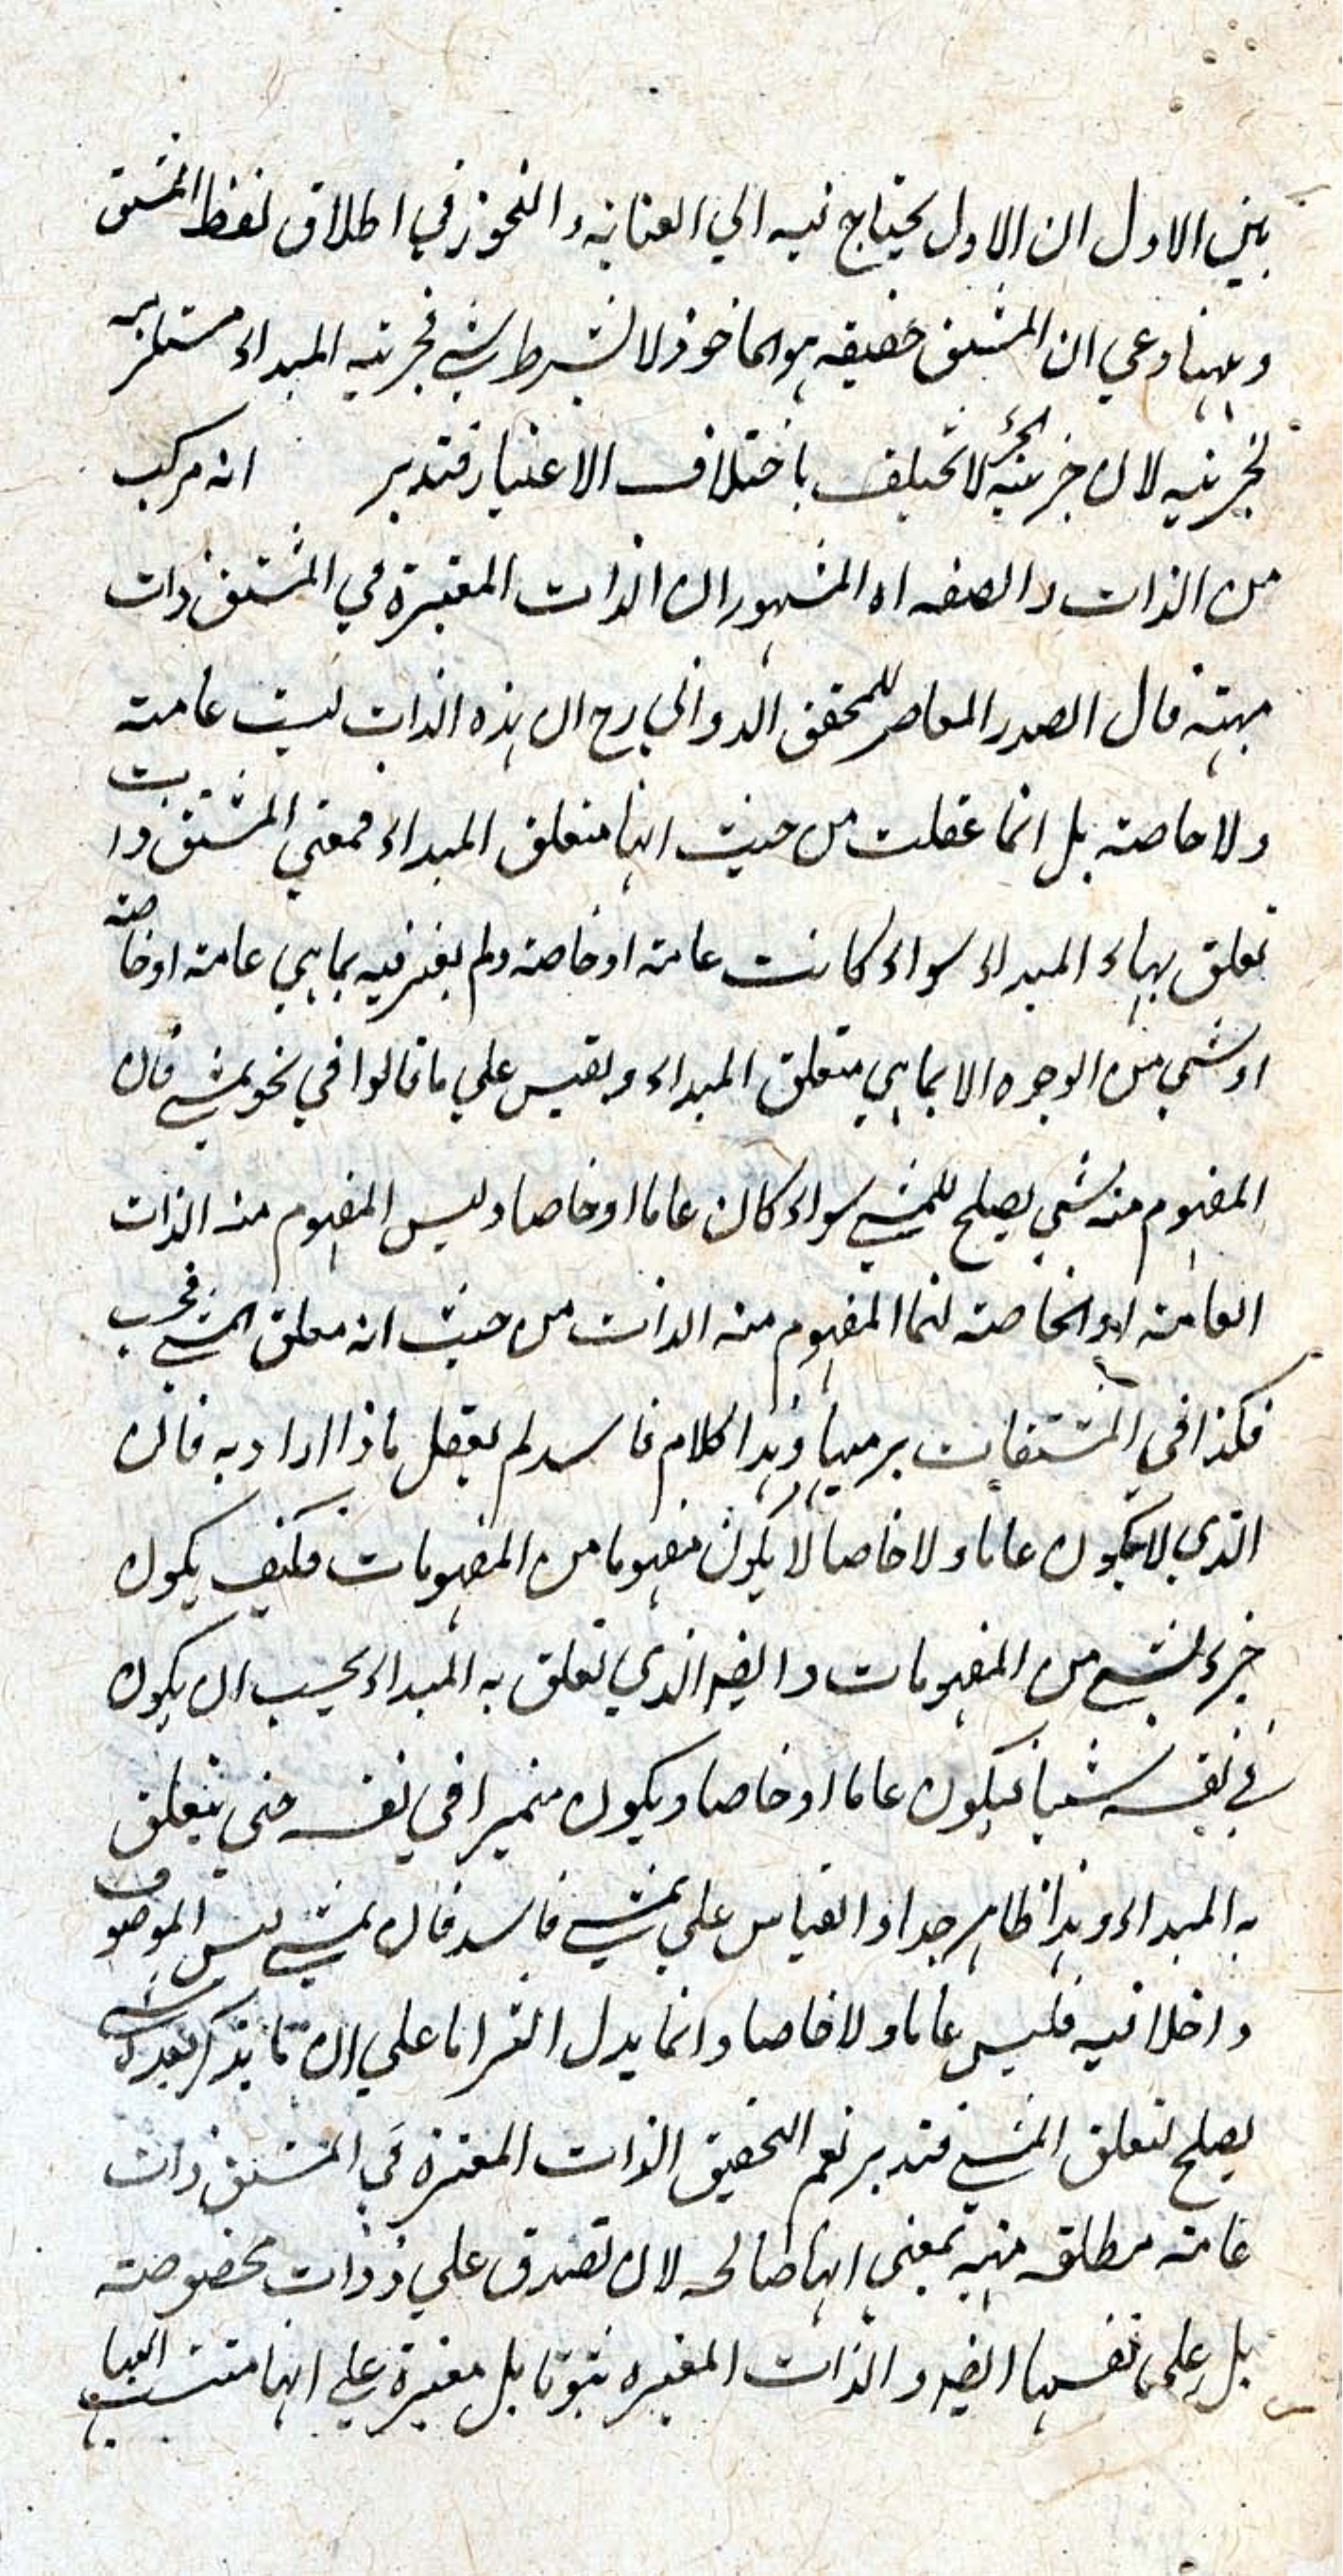 بين الاول ان الاول يحتاج فيه الي العنايه و التجوز في اطلاق لفظ المشتق
و ههنا دعي ان المشتق حقيقه هو الماخوذ لا بشرط شي فجزئيه المبداء مستلزمه
لجزئيه لان جزئيه الجزء لا تختلف باختلاف الاعتبار فتدبر انه مركب
من الذات و الصفه اه المشهور ان الذات المعتبرة في المشتق ذات
مبهمة قال الصدر المعاصر للمحقق الدواني رح ان هذه الذات ليست عامة
ولا خاصة بل انما عقلت من حيث انها متعلق المبداء فمعني المشتق ذات
تعلق بهاء المبداء سواء كانت عامة او خاصة ولم يعتبر فيه بما هي عامة او خاصة
او شي من الوجوه الا بما هي متعلق المبداء و يقيس علي ما قالوا في نحو يمشي فان
المفهوم منه شي يصلح للمشي سواء كان عاما او خاصا وليس المفهوم منه الذات
العامة او الخاصة انما المفهوم منه الذات من حيث انه متعلق المشي فحسب
فكذا في المشتقات برمتها و هذا كلام فاسد لم يعقل ماذا اراد به فان
الذي لا يكون عاما ولا خاصا لا يكون مفهوما من المفهومات فكيف يكون
جزء لشي من المفهومات و ايضا الذي تعلق به المبداء يجب ان يكون
في نفسه شيا فيكون عاما او خاصا و يكون متميزا في نفسه حتي يتعلق
به المبداء و هذا ظاهر جدا و القياس علي يمشي فاسد فان يمشي ليس الموصوف
داخلا فيه فليس عاما ولا خاصا و انما يدل التزاما علي ان ما يذكر بعده شي
يصلح لتعلق المشي فتدبر نعم التحقيق الذات المعتبرة في المشتق ذات
عامة مطلقه مبهمة بمعني انها صالحه لان تصدق علي ذوات مخصوصة
بل علي نفسها ايضا و الذات المعتبره ثبوتا بل معتبرة علي انها منتسب اليها